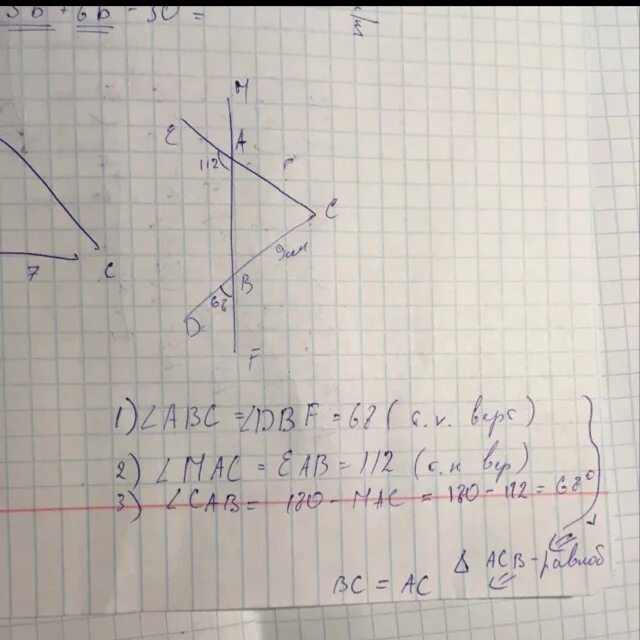 5b + 6b - 30 =
M
E
A
112
?
C
9см
7
C
B
68
D
F
1) ∠ABC = ∠DBF = 68 (т.к. верт)
2) ∠MAC = EAB = 112 (т.к вер)
3) ∠CAB = 180 - MAC = 180 - 112 = 68°
Δ ACB - равноб
BC = AC